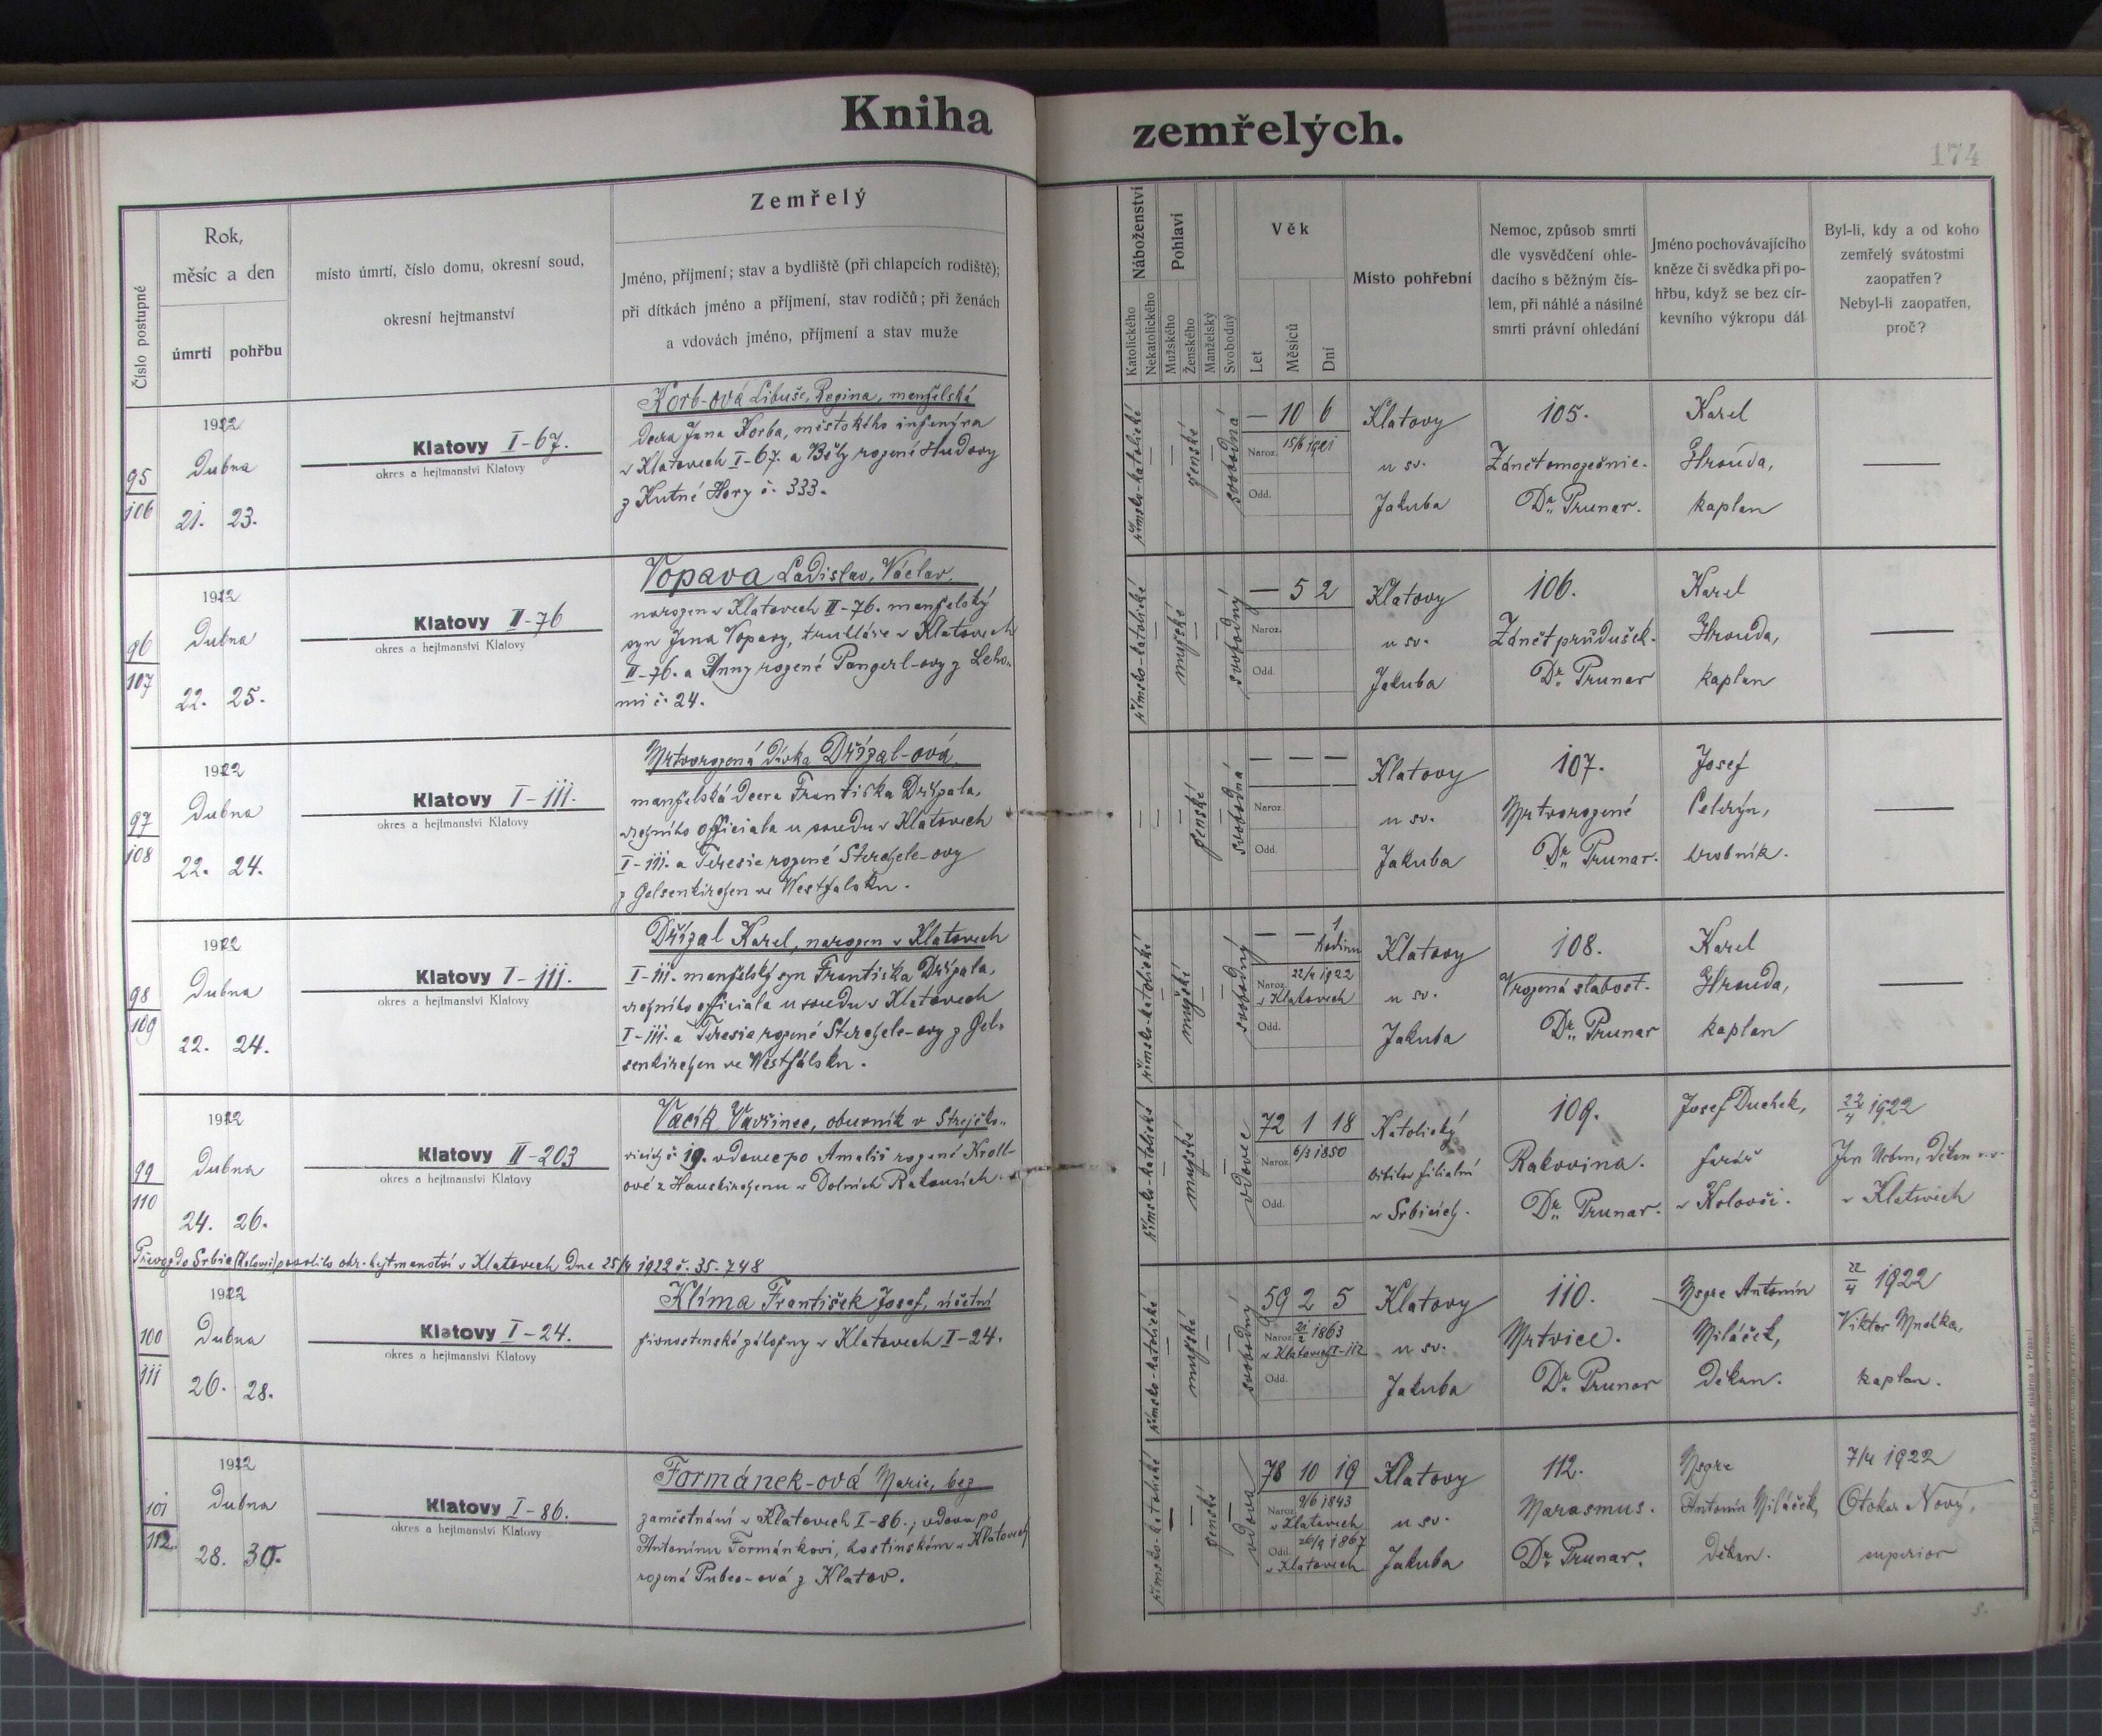 Kniha zemřelých.
174
Číslo postupné
Rok,
měsíc a den
úmrtí pohřbu
místo úmrtí, číslo domu, okresní soud,
okresní hejtmanství
Zemřelý
Jméno, příjmení; stav a bydliště (při chlapcích rodiště);
při dítkách jméno a příjmení, stav rodičů; při ženách
a vdovách jméno, příjmení a stav muže
Náboženství
Katolického
Nekatolického
Pohlaví
Mužského
Ženského
Manželský
Svobodný
Věk
Let
Měsíců
Dní
Místo pohřební
Nemoc, způsob smrti
dle vysvědčení ohle-
dacího s běžným čís-
lem, při náhlé a násilné
smrti právní ohledání
Jméno pochovávajícího
kněze či svědka při po-
hřbu, když se bez cír-
kevního výkropu dál
Byl-li, kdy a od koho
zemřelý svátostmi
zaopatřen?
Nebyl-li zaopatřen,
proč?
95
106
1922
Dubna
21. 23.
Klatovy I-67.
okres a hejtmanství Klatovy
Korb-ová Libuše, Regina, manželská
dcera Jana Korba, městského inženýra
v Klatovech I-67. a Běly rozené Hudovy
z Kutné Hory č. 333.
římsko-katolické
ženské
svobodná
— 10 6
Naroz. 15/6 1921
Odd.
Klatovy
u sv.
Jakuba
105.
Zánět omozečnic.
Dr. Prunar.
Karel
Hrouda,
kaplan
96
107
1922
Dubna
22. 25.
Klatovy II-76
okres a hejtmanství Klatovy
Vopava Ladislav, Václav,
narozen v Klatovech II-76. manželský
syn Jana Vopavy, truhláře v Klatovech
II-76. a Anny rozené Pangerl-ovy z
č. 24.
římsko-katolické
mužské
svobodný
— 5 2
Naroz.
Odd.
Klatovy
u sv.
Jakuba
106.
Zánět průdušek.
Dr. Prunar
Karel
Hrouda,
kaplan
97
108
1922
Dubna
22. 24.
Klatovy I-111.
okres a hejtmanství Klatovy
Mrtvorozená dívka Dřízal-ová,
manželská dcera Františka Dřízala,
officiala u soudu v Klatovech
I-111. a Teresie rozené
z Gelsenkirchen ve Westfalsku.
ženské
svobodná
— — —
Naroz.
Odd.
Klatovy
u sv.
Jakuba
107.
Mrtvorozené
Dr. Prunar.
Josef
hrobník.
98
109
1922
Dubna
22. 24.
Klatovy I-111.
okres a hejtmanství Klatovy
Dřízal Karel, narozen v Klatovech
I-111. manželský syn Františka Dřízala,
officiala u soudu v Klatovech
I-111. a Teresie rozené z Gel-
senkirchen ve Westfálsku.
římsko-katolické
mužské
svobodný
— — 1
hodinu
Naroz. 22/4 1922
v Klatovech
Odd.
Klatovy
u sv.
Jakuba
108.
Vrozená slabost.
Dr. Prunar
Karel
Hrouda,
kaplan
99
110
1922
Dubna
24. 26.
Klatovy II-203
okres a hejtmanství Klatovy
Vacík Vavřinec, obuvník v Strejčko-
vicích č. 19. vdovec po Amalii rozené Kroll-
ové z Hauskirchenu v Dolních Rakousích.
římsko-katolické
mužské
vdovec
72 1 18
Naroz. 6/3 1850
Odd.
Katolický
hřbitov filialní
v Srbicích.
109.
Rakovina.
Dr. Prunar.
Josef Duchek,
farář
v Koloveči.
22/4 1922
Jan Urban, děkan
v Klatovech
Převoz do Srbic (Koloveč) povolilo okr. hejtmanství v Klatovech dne 25/4 1922 č. 35.748
100
111
1922
Dubna
26. 28.
Klatovy I-24.
okres a hejtmanství Klatovy
Klíma František Josef, účetní
živnostenské záložny v Klatovech I-24.
římsko-katolické
mužské
svobodný
59 2 5
Naroz. 21/2 1863
v Klatovech I-112
Odd.
Klatovy
u sv.
Jakuba
110.
Mrtvice.
Dr. Prunar
Msgre Antonín
Miláček,
děkan.
22/4 1922
Viktor
kaplan.
101
112.
1922
Dubna
28. 30.
Klatovy I-86.
okres a hejtmanství Klatovy
Formánek-ová Marie, bez
zaměstnání v Klatovech I-86.; vdova po
Antonínu Formánkovi, hostinském v Klatovech
rozená z Klatov.
římsko-katolické
ženské
vdova
78 10 19
Naroz. 9/6 1843
v Klatovech
Odd. 26/9 1867
v Klatovech
Klatovy
u sv.
Jakuba
112.
Marasmus.
Dr. Prunar.
Msgre
Antonín Miláček,
děkan.
7/4 1922
Otokar Nový,
superior